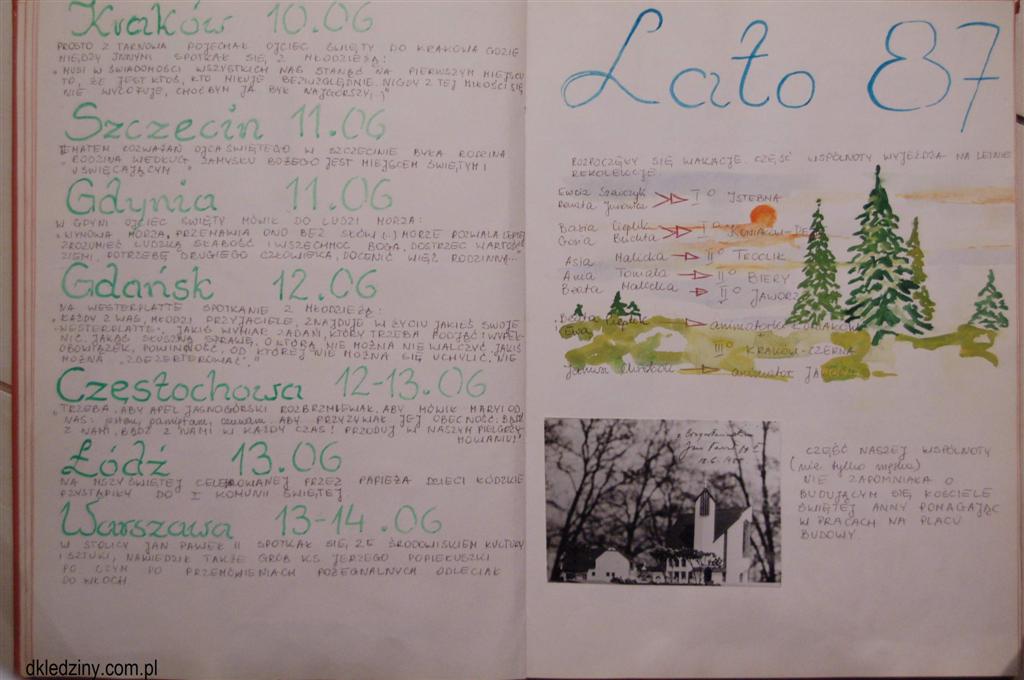 Kraków 10.06
PROSTO Z TARNOWA POJECHAŁ OJCIEC ŚWIĘTY DO KRAKOWA GDZIE
MIĘDZY INNYMI SPOTKAŁ SIĘ Z MŁODZIEŻĄ:
"MUSI W ŚWIADOMOŚCI WSZYSTKICH NAS STANĄĆ NA PIERWSZYM MIEJSCU
TO, ŻE JEST KTOŚ, KTO MIŁUJE BEZWZGLĘDNIE. NIGDY Z TEJ MIŁOŚCI SIĘ
NIE WYCOFUJE, CHOĆBYM JA BYŁ NAJGORSZY (..)"
Szczecin 11.06
TEMATEM ROZWAŻAŃ OJCA ŚWIĘTEGO W SZCZECINIE BYŁA RODZINA
"RODZINA WEDŁUG ZAMYSŁU BOŻEGO JEST MIEJSCEM ŚWIĘTYM I
UŚWIĘCAJĄCYM"
Gdynia 11.06
W GDYNI OJCIEC ŚWIĘTY MÓWIŁ DO LUDZI MORZA:
MORZA, PRZEMAWIA ONO BEZ SŁÓW (..) MORZE POZWALA LEPIEJ
ZROZUMIEĆ LUDZKĄ SŁABOŚĆ I WSZECHMOC BOGA, DOSTRZEC WARTOŚĆ
ZIEMI, POTRZEBĘ DRUGIEGO CZŁOWIEKA, DOCENIĆ WIĘŹ RODZINNĄ..."
Gdańsk 12.06
NA WESTERPLATTE SPOTKANIE Z MŁODZIEŻĄ:
"KAŻDY Z WAS, MŁODZI PRZYJACIELE, ZNAJDUJE W ŻYCIU JAKIEŚ SWOJE
"WESTERPLATTE", JAKIŚ WYMIAR ZADAŃ, KTÓRY TRZEBA PODJĄĆ I WYPEŁ-
NIĆ, JAKĄŚ SŁUSZNĄ SPRAWĘ, O KTÓRĄ NIE MOŻNA NIE WALCZYĆ, JAKIŚ
OBOWIĄZEK, POWINNOŚĆ, OD KTÓREJ NIE MOŻNA SIĘ UCHYLIĆ, NIE
MOŻNA "ZDEZERTEROWAĆ"."
Częstochowa 12-13.06
"TRZEBA, ABY APEL JASNOGÓRSKI ROZBRZMIEWAŁ, ABY MÓWIŁ MARYI OD
NAS: jestem, pamiętam, czuwam. ABY PRZYZYWAŁ JEJ OBECNOŚĆ: BĄDŹ
Z NAMI, BĄDŹ Z NAMI W KAŻDY CZAS! PRZODUJ W NASZYM PIELGRZY-
MOWANIU!"
Łódź 13.06
NA MSZY ŚWIĘTEJ CELEBROWANEJ PRZEZ PAPIEŻA DZIECI ŁÓDZKIE
PRZYSTĄPIŁY DO I KOMUNII ŚWIĘTEJ
Warszawa 13-14.06
W STOLICY JAN PAWEŁ II SPOTKAŁ SIĘ ZE ŚRODOWISKIEM KULTURY
I SZTUKI, NAWIEDZIŁ TAKŻE GRÓB KS. JERZEGO POPIEŁUSZKI
PO CZYM PO PRZEMÓWIENIACH POŻEGNALNYCH ODLECIAŁ
DO WŁOCH
Lato 87
ROZPOCZĘŁY SIĘ WAKACJE. CZĘŚĆ WSPÓLNOTY WYJEŻDŻA NA LETNIE
REKOLEKCJE.
Ewcia
Renata I° ISTEBNA
Basia Cieplik
Gosia I° KONIAKÓW-DE
Asia Malicka II° TROCLIK
Ania Tomala II° BIERY
Beata Malicka II° JAWORZ
Cieplik animatorki KONIAKÓW
Ewa
III° KRAKÓW-CZERNA
Janusz animator
CZĘŚĆ NASZEJ WSPÓLNOTY
(nie tylko męska)
NIE ZAPOMNIAŁA O
BUDUJĄCYM SIĘ KOŚCIELE
ŚWIĘTEJ ANNY POMAGAJĄC
W PRACACH NA PLACU
BUDOWY
dkledziny.com.pl